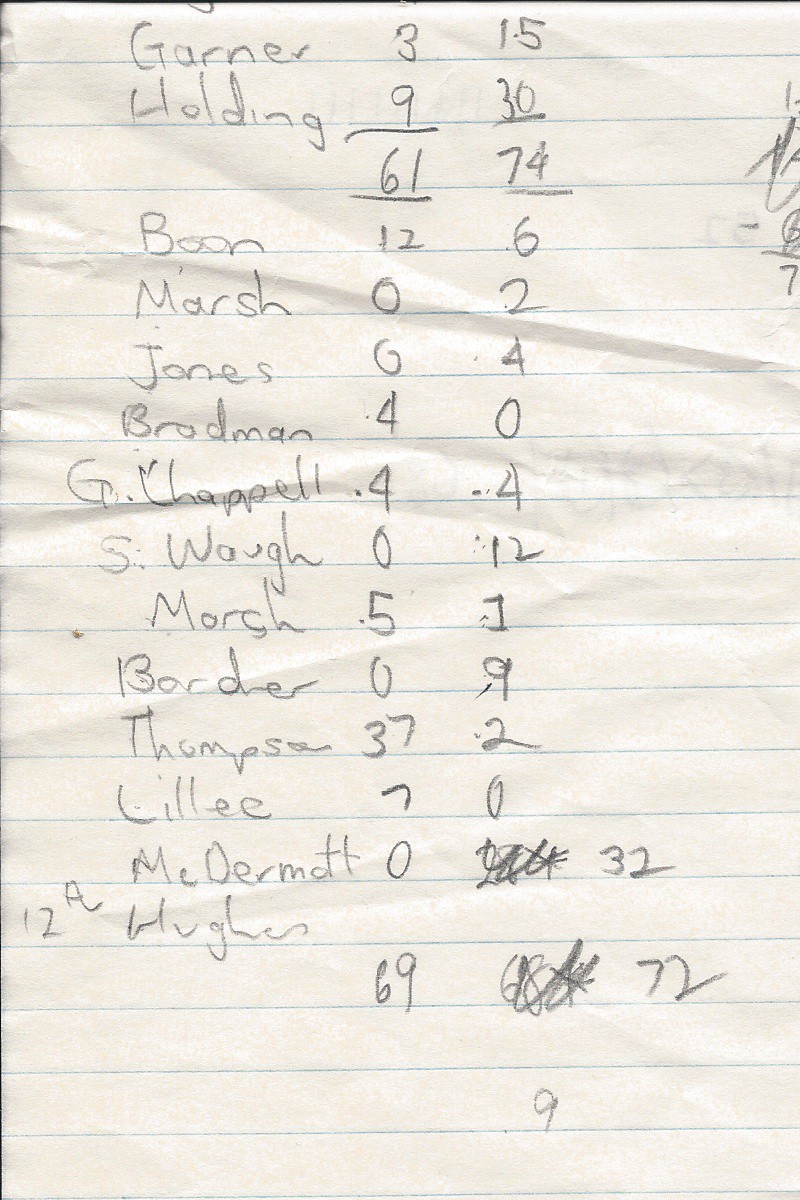 Garner 3 15
Holding 9 30
61 74
Boon 12 6
Marsh 0 2
Jones 0 4
Bradman .4 0
G. Chappell .4 .4
S. Waugh 0 12
Marsh .5 1
Border 0 9
Thompson 37 2
Lillee 7 0
McDermott 0 32
12th Hughes
69 72
9